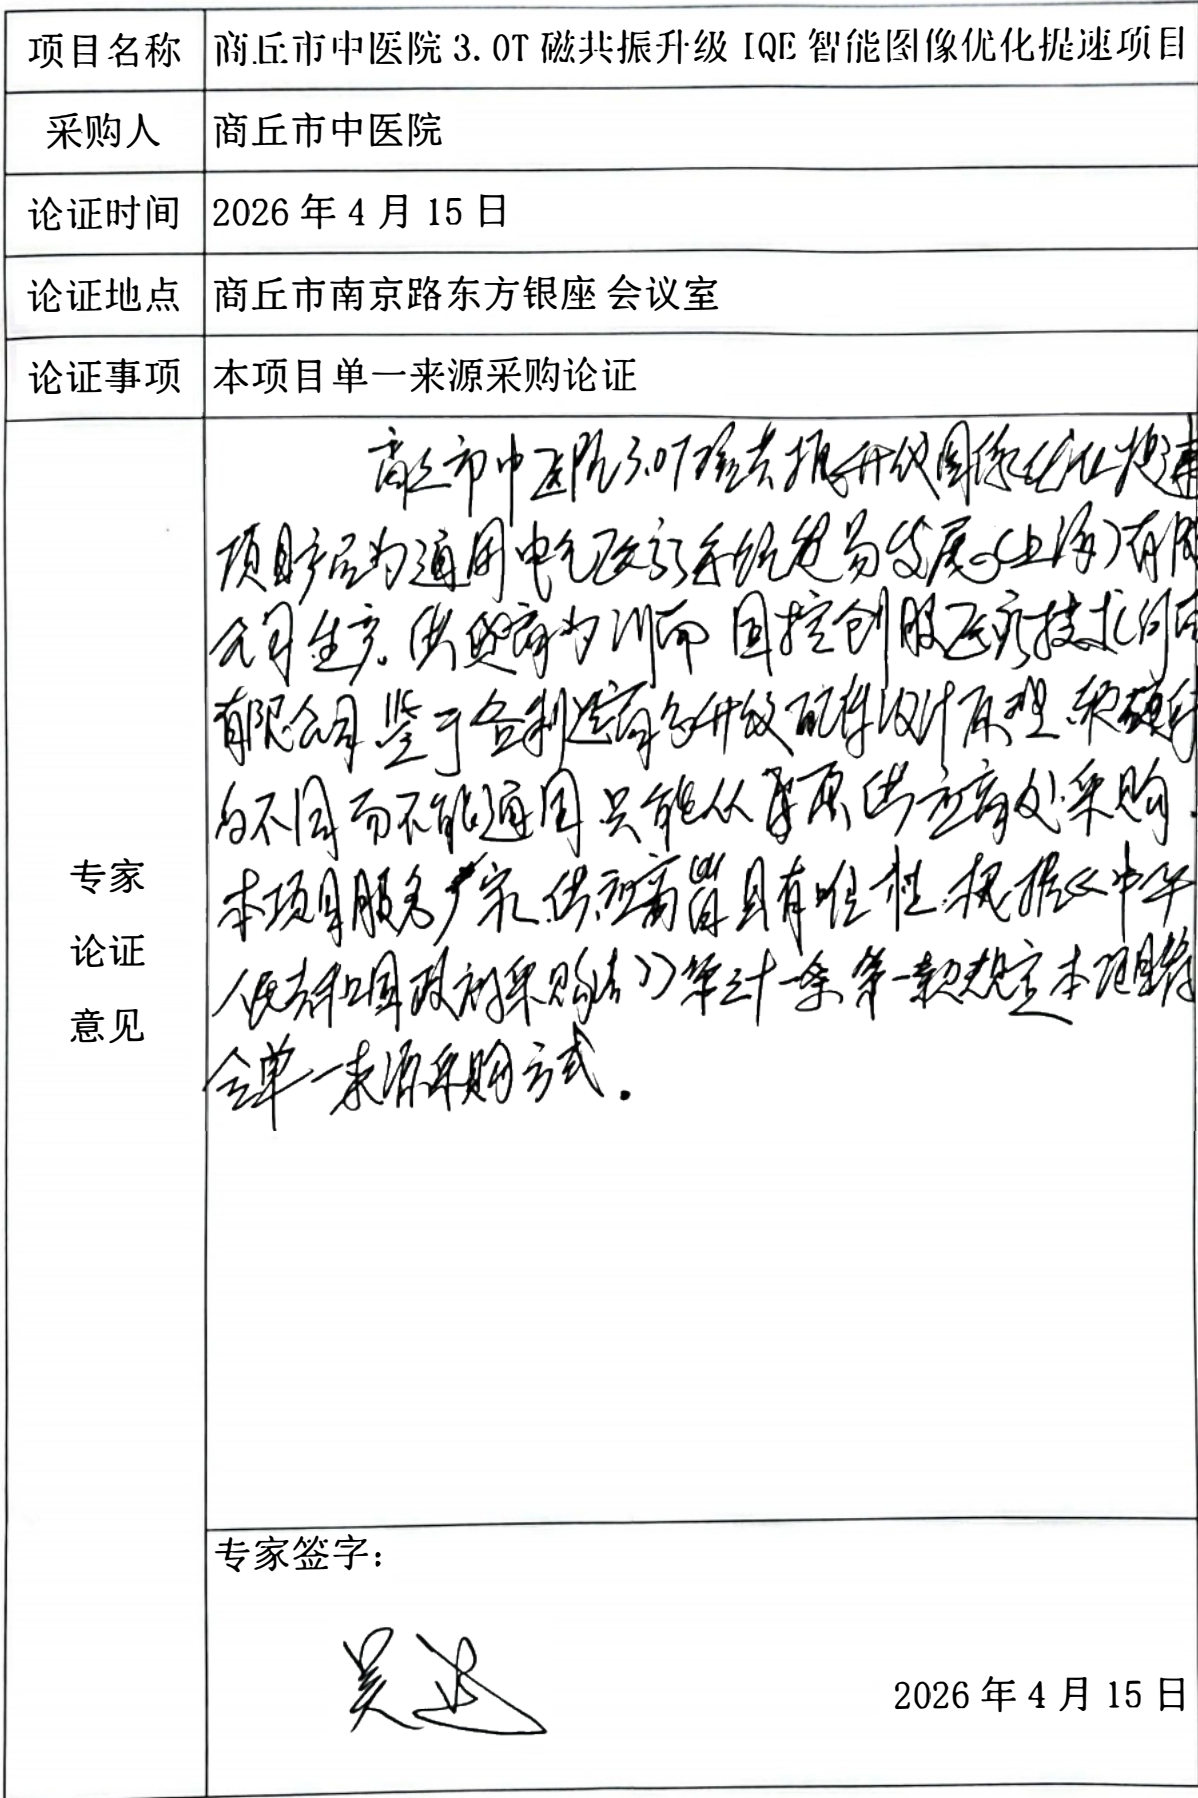 项目名称 商丘市中医院3.0T磁共振升级IQE智能图像优化提速项目
采购人 商丘市中医院
论证时间 2026年4月15日
论证地点 商丘市南京路东方银座 会议室
论证事项 本项目单一来源采购论证
专家
论证
意见
商丘市中医院3.0T磁共振升级图像优化提速
项目产品为通用电气医疗系统贸易发展(上海)有限
公司生产,供货商为 国控创服医疗技术
有限公司,鉴于各制造商分升级配件设计原理、软硬件
的不同而不能通用,只能从原供应商处采购.
本项目服务厂家、供应商皆具有唯一性,根据《中华
人民共和国政府采购法》第三十一条第一款规定本项目符
合单一来源采购方式.
专家签字:
2026年4月15日